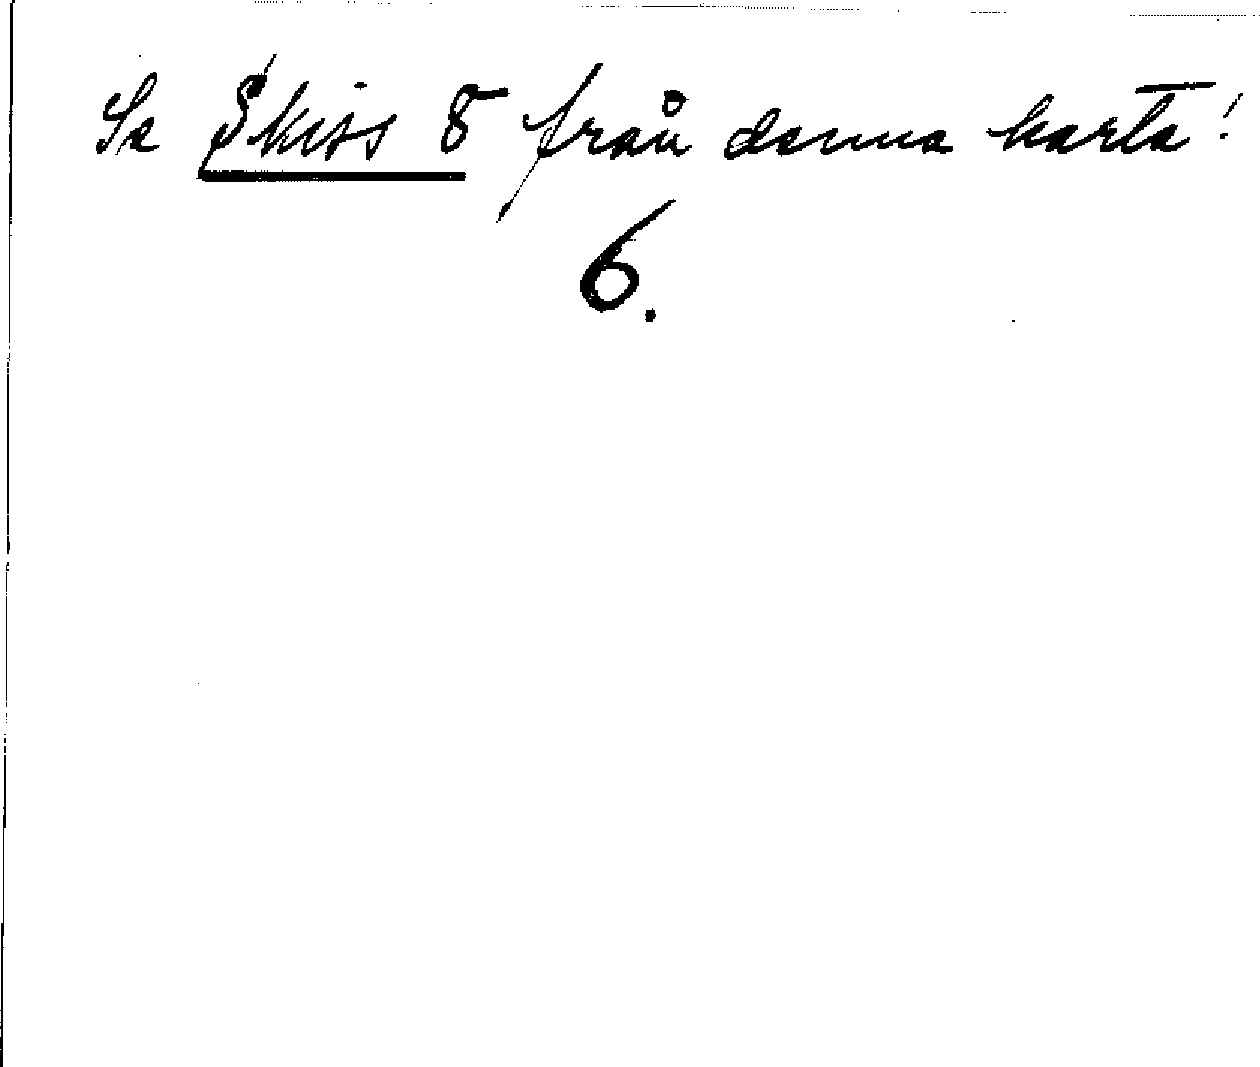 Se Skiss 8 från denna karta!
6.